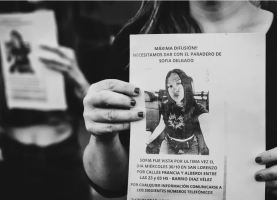 MÁXIMA DIFUSIÓN!
NECESITAMOS DAR CON EL PARADERO DE
SOFIA DELGADO
SOFIA FUE VISTA POR ULTIMA VEZ EL
DIA MIÉRCOLES 30/10 EN SAN LORENZO
POR CALLES FRANCIA Y ALBERDI ENTRE
LAS 23 Y 03 HS - BARRIO DIAZ VÉLEZ
POR CUALQUIER INFORMACIÓN COMUNICARSE A
LOS SIGUIENTES NÚMEROS TELEFÓNICOS